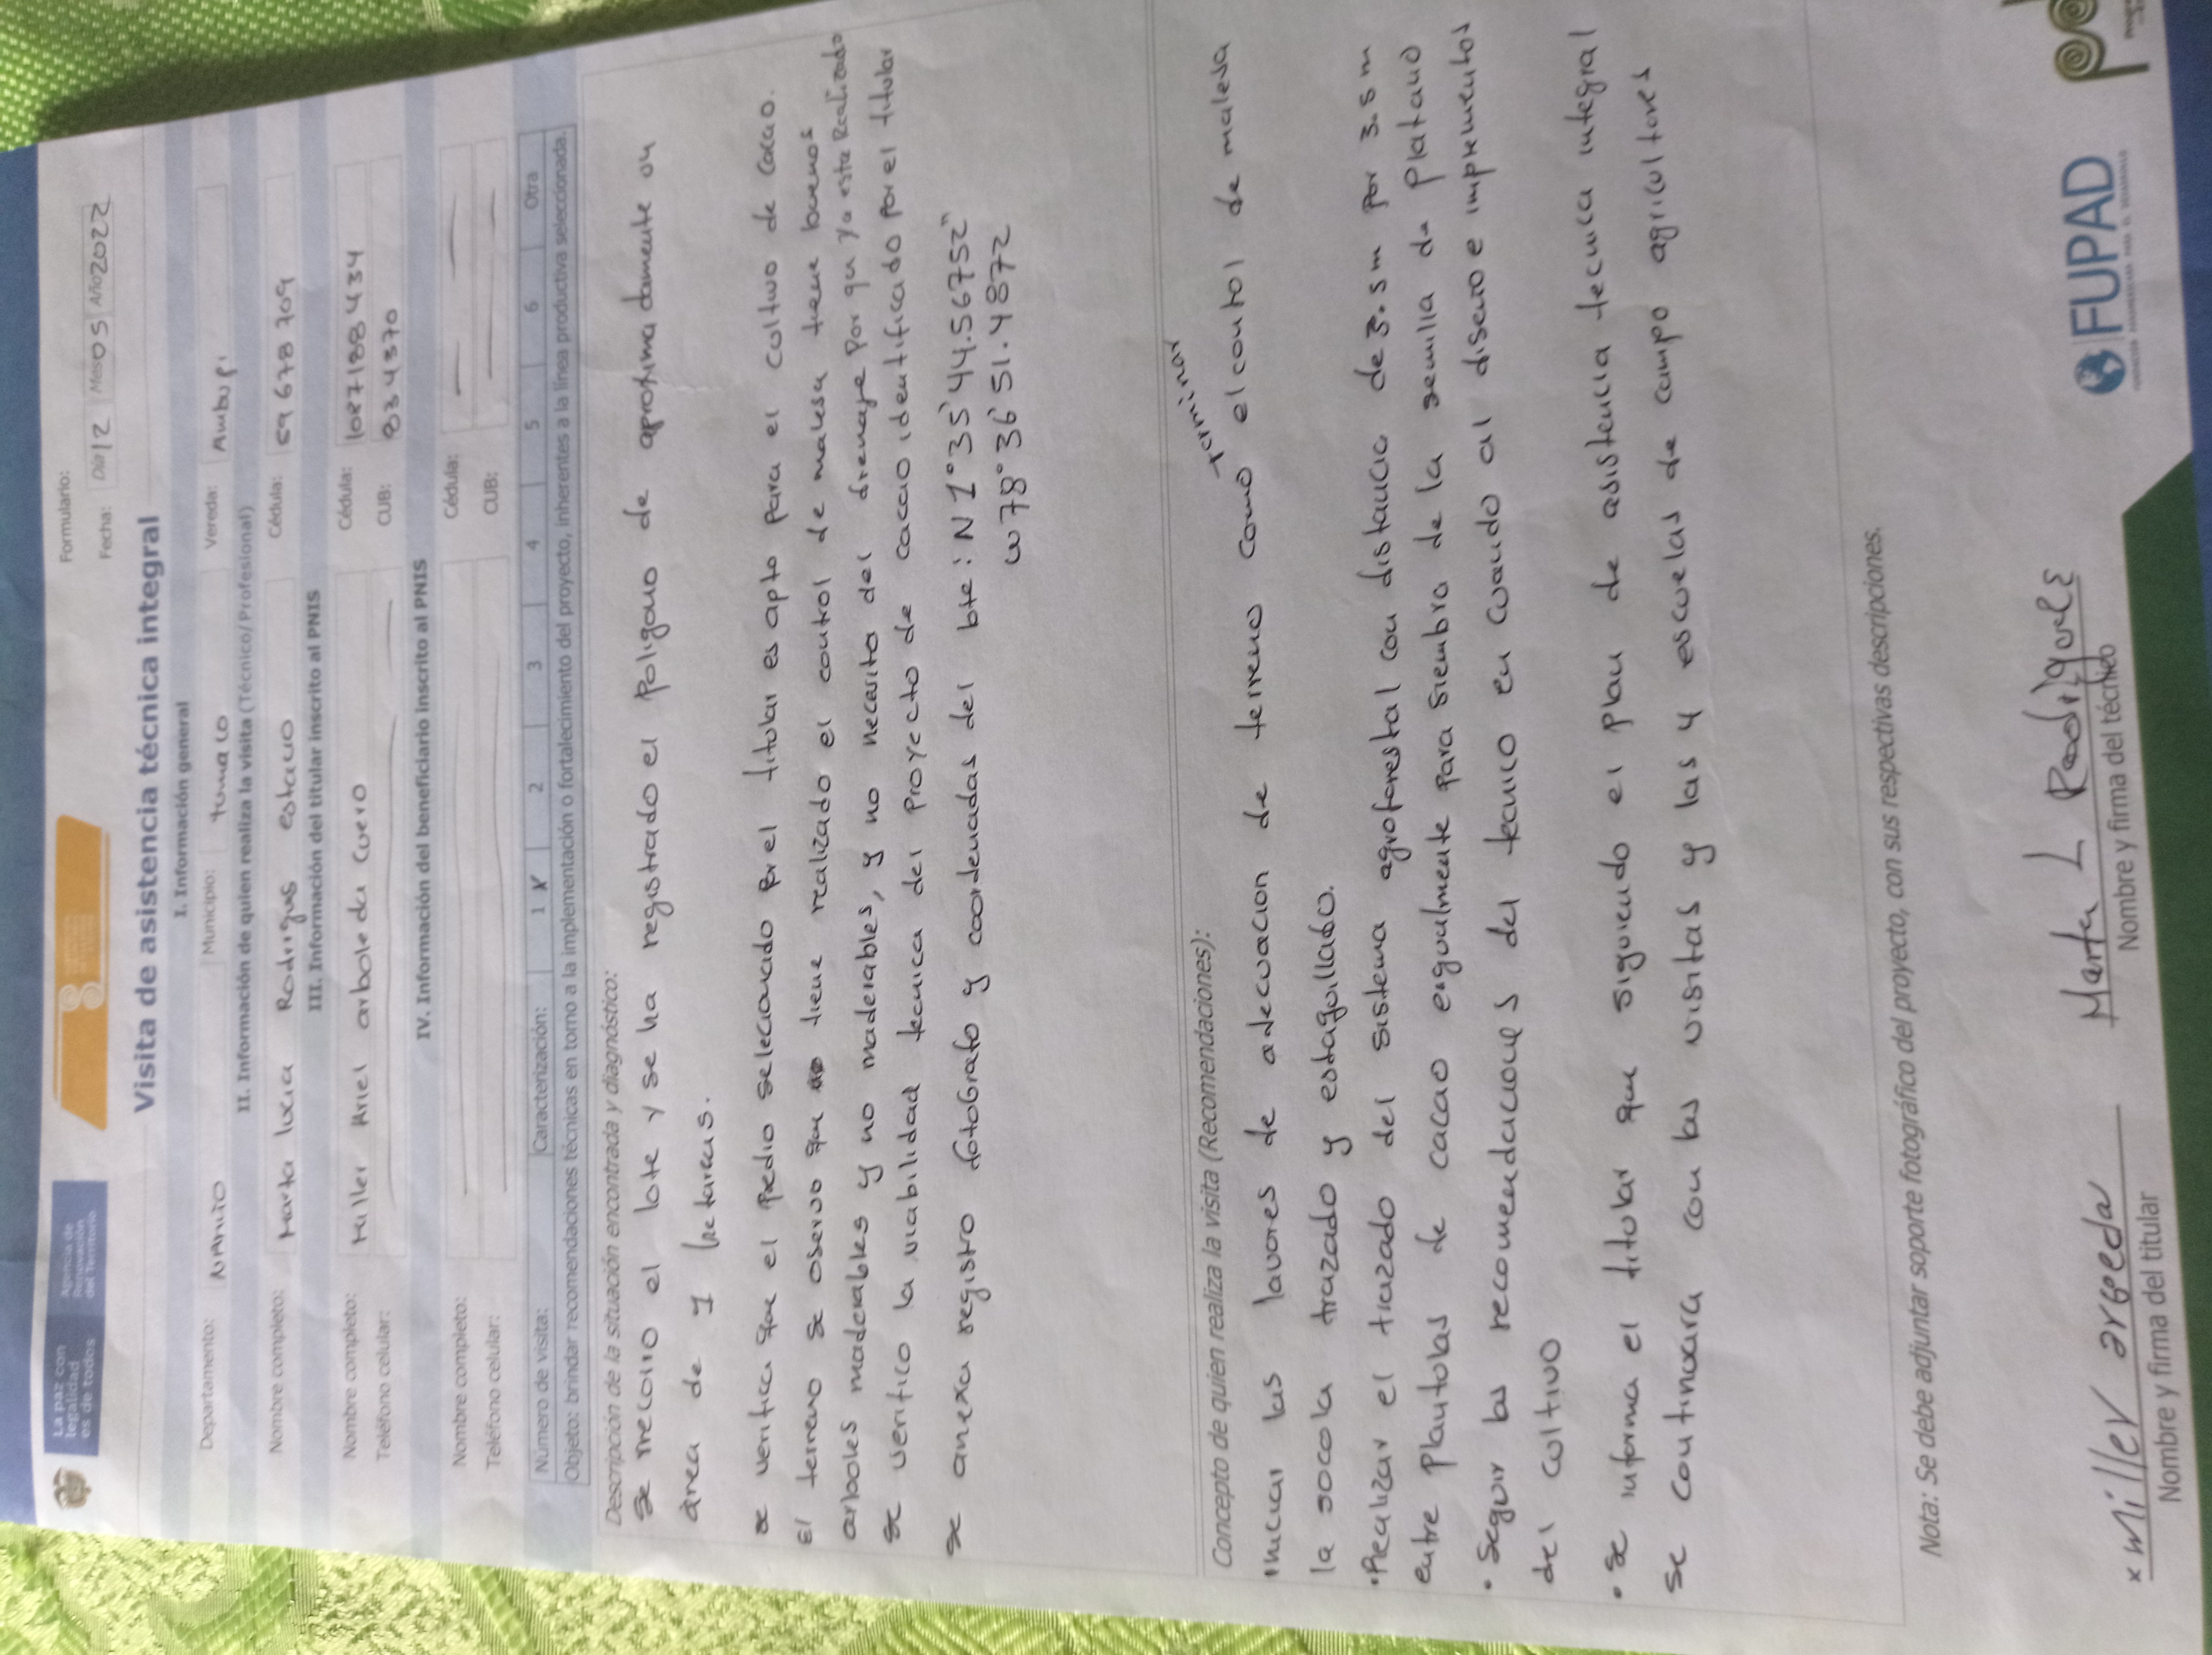 La paz con
legalidad
es de todos
Agencia de
Renovación
del Territorio
Formulario:
Fecha: Día 12 Mes 05 Año 2022
Visita de asistencia técnica integral
I. Información general
Departamento: NARIÑO Municipio: tumaco Vereda: Ambupi
II. Información de quien realiza la visita (Técnico/Profesional)
Nombre completo: Marta lucia Rodrigues estacio Cédula: 59 678 709
III. Información del titular inscrito al PNIS
Nombre completo: Miller Ariel arboleda cuero Cédula: 1087188434
Teléfono celular: CUB: 8344370
IV. Información del beneficiario inscrito al PNIS
Nombre completo: Cédula:
Teléfono celular: CUB:
Número de visita: Caracterización: 1 X 2 3 4 5 6 Otra
Objeto: brindar recomendaciones técnicas en torno a la implementación o fortalecimiento del proyecto, inherentes a la línea productiva seleccionada.
Descripción de la situación encontrada y diagnóstico:
se recorrio el lote y se ha registrado el poligono de aproximadamente un
área de 1 hectareas.
se verifica que el predio seleccionado por el titular es apto para el cultivo de cacao.
El terreno se observo que tiene realizado el control de malesa tiene buenos
arboles maderables y no maderables, y no necesita del drenaje Por que ya esta Realizado
se verifico la viabilidad tecnica del Proyecto de cacao identificado por el titular
se anexa registro fotografo y coordenadas del lote: N 1°35'44.56752"
W 78°36'51.4872
Concepto de quien realiza la visita (Recomendaciones):
terminar
iniciar las lavores de adecuacion de terreno como el control de malesa
la socola trazado y estaquillado.
• Realizar el trazado del sistema agroforestal con distancia de 3.5m por 3.5m
entre plantulas de cacao e igualmente para siembra de la semilla de platano
• seguir las recomendaciones del tecnico en cuando al diseño e imprementos
del cultivo
• se informa el titular que siguiendo el plan de asistencia tecnica integral
se continuara con las visitas y las 4 escuelas de campo agricultores
Nota: Se debe adjuntar soporte fotográfico del proyecto, con sus respectivas descripciones.
x Miller arboleda
Nombre y firma del titular
Marta L Rodrigues
Nombre y firma del técnico
FUPAD